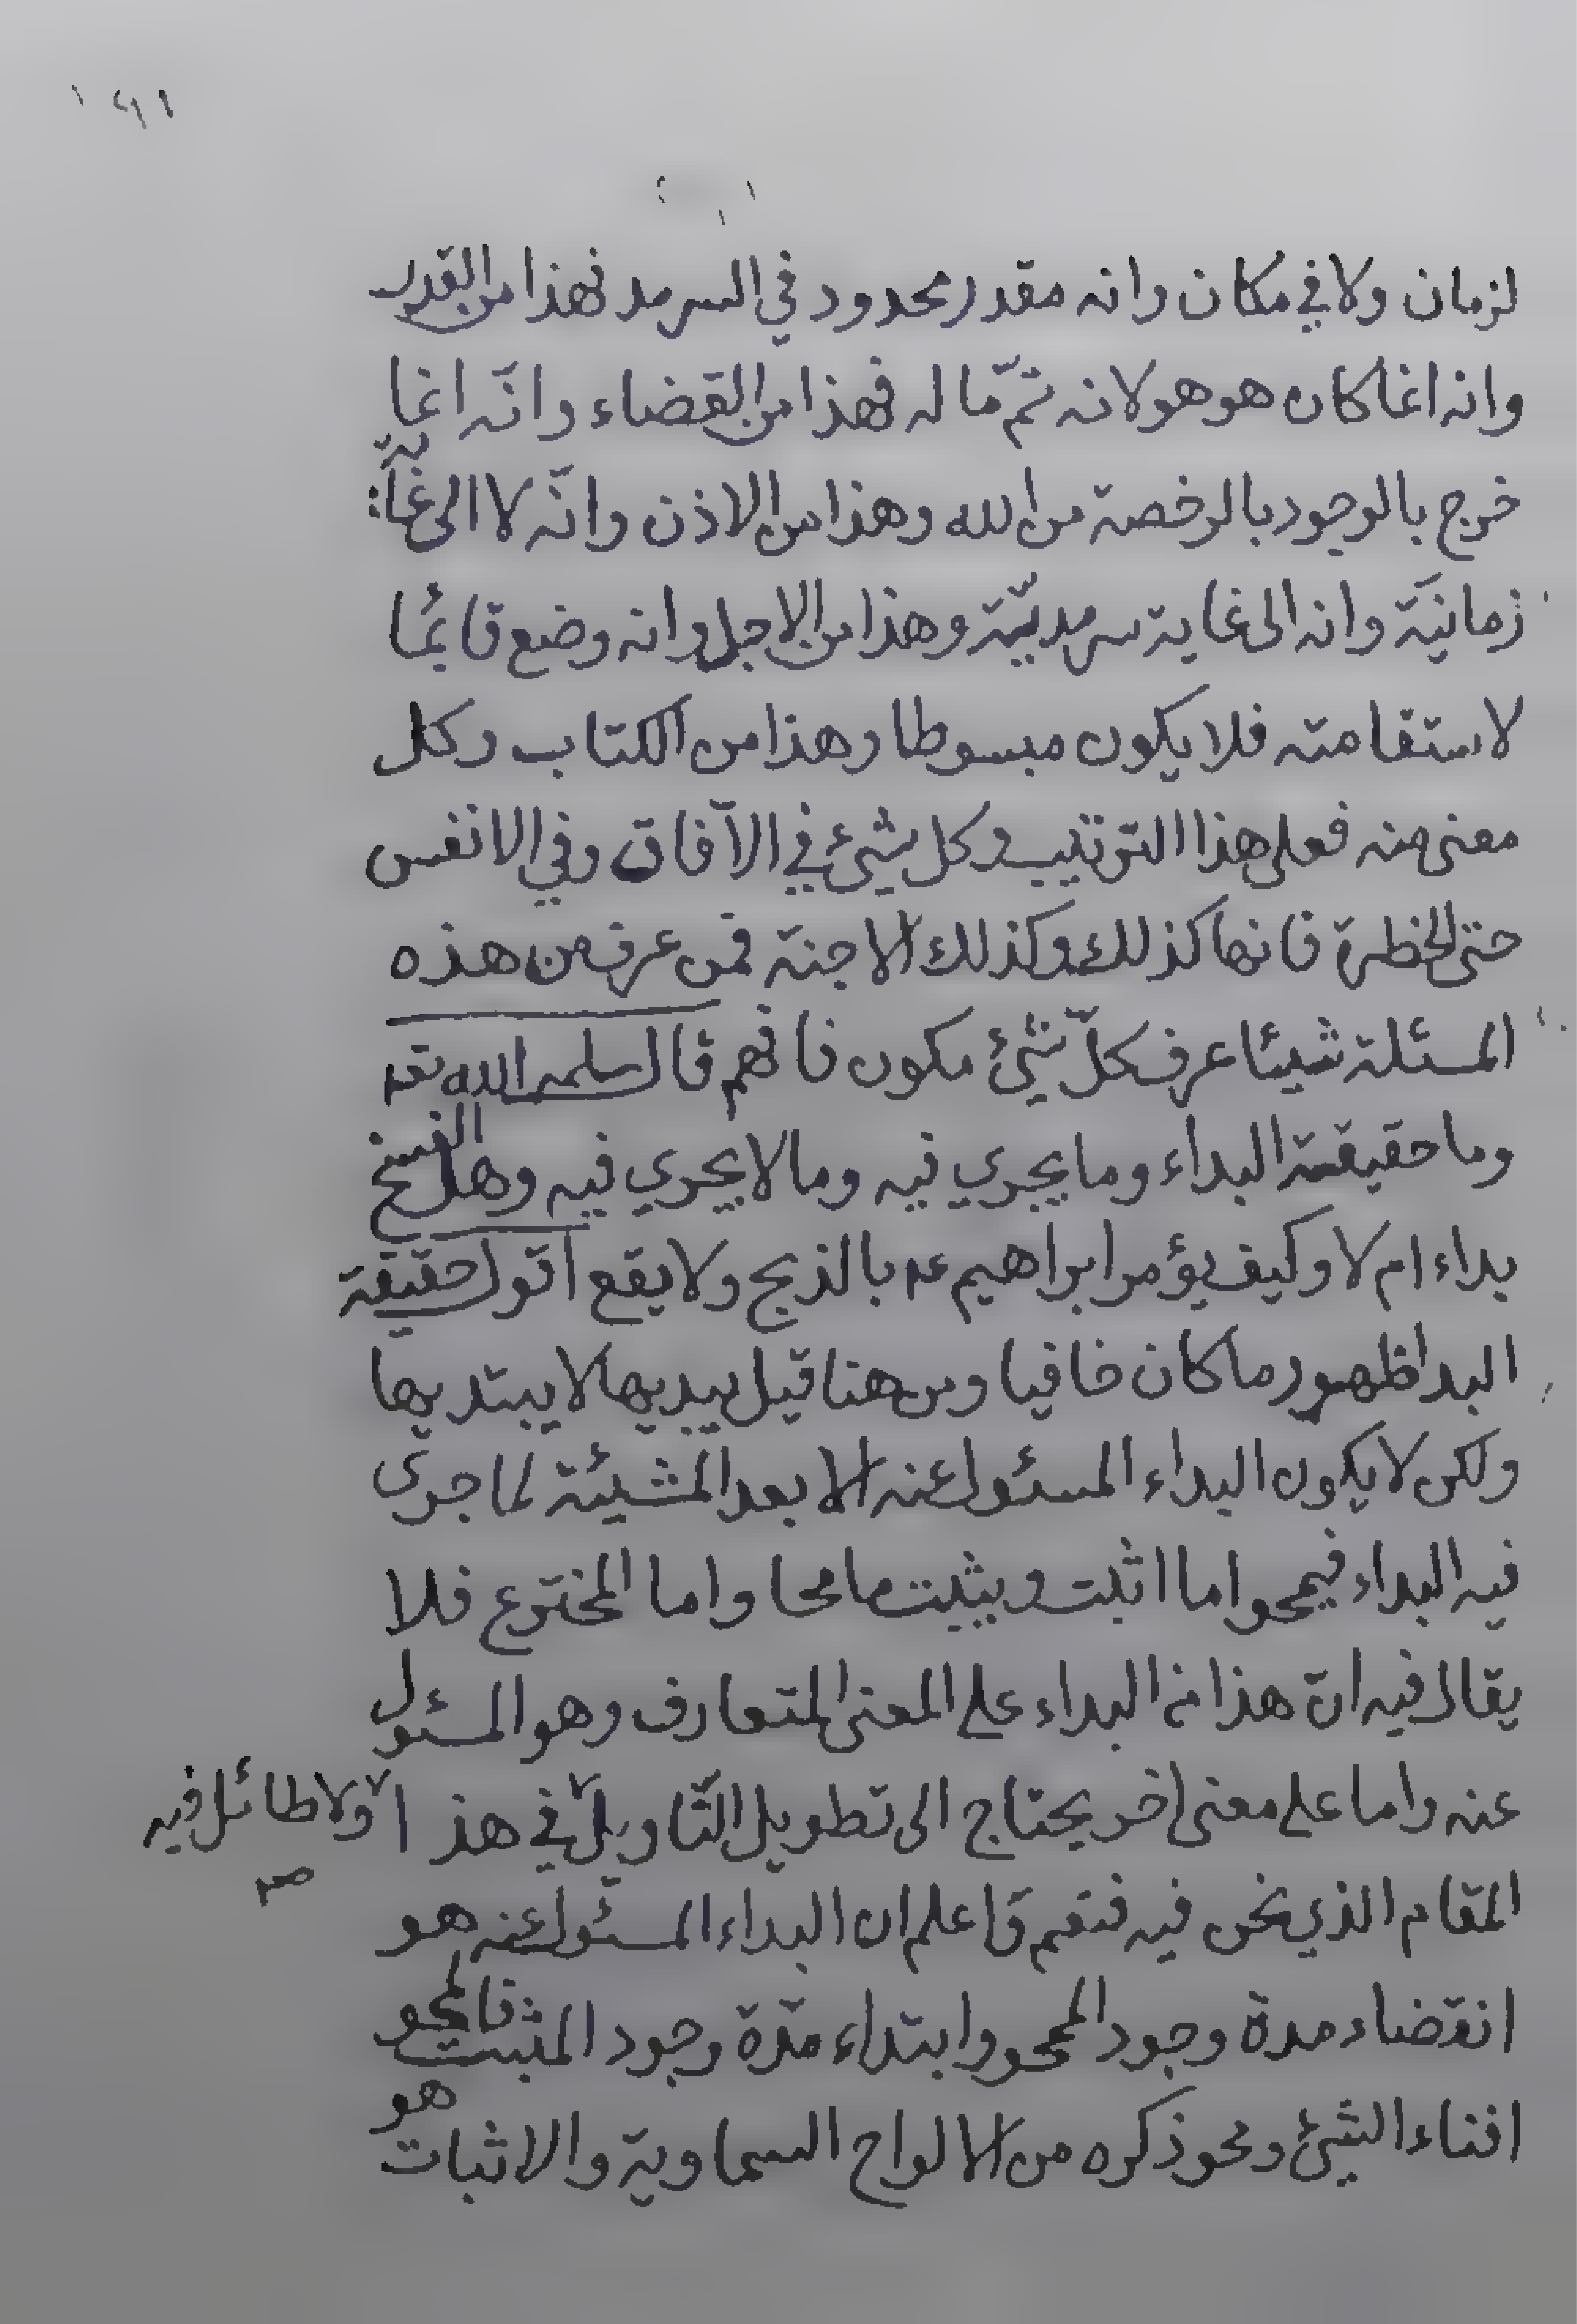 ١٩١
لزمان ولا في مكان وانه مقدر محدود في السرمد فهذا من القدر
وانه انما كان هو هو لانه تمّ ما له فهذا من القضاء وانّه انما
خرج بالوجود بالرخصة من الله وهذا من الاذن وانّه لا الى غاية
زمانيّة وانه الى غاية سرمديّة وهذا من الاجل وانه وضع قائما
لاستقامته فلا يكون مبسوطا وهذا من الكتاب وكل
معنى منه فعلى هذا الترتيب وكل شيء في الآفاق وفي الانفس
حتى الخطرة فانها كذلك وكذلك الاجنة فمن عرف من هذه
المسئلة شيئا عرف كلّ شيء مكون فافهم قال سلمه الله تعـ
وما حقيقة البداء وما يجري فيه وما لا يجري فيه وهل النسخ
بداء ام لا وكيف يؤمر ابراهيم عـ بالذبح ولا يقع اقول حقيقة
البدا ظهور ما كان خافيا ومن هنا قيل يبديها لا يبتديها
ولكن لا يكون البداء المسئول عنه الا بعد المشيئة لما جرى
فيه البداء فيمحو اما اثبت ويثبت ما محا واما المخترع فلا
يقال فيه انّ هذا فيه البداء على المعنى المتعارف وهو المسئول
عنه واما على معنى اخر يحتاج الى تطويل التّاويل في هذا ولا طائل فيه
صح
المقام الذي نحن فيه فنعم واعلم ان البداء المسئول عنه هو
انقضاء مدة وجود الممحو وابتداء مدّة وجود المثبت فالمحو
هو
افناء الشيء ومحو ذكره من الالواح السماوية والاثبات